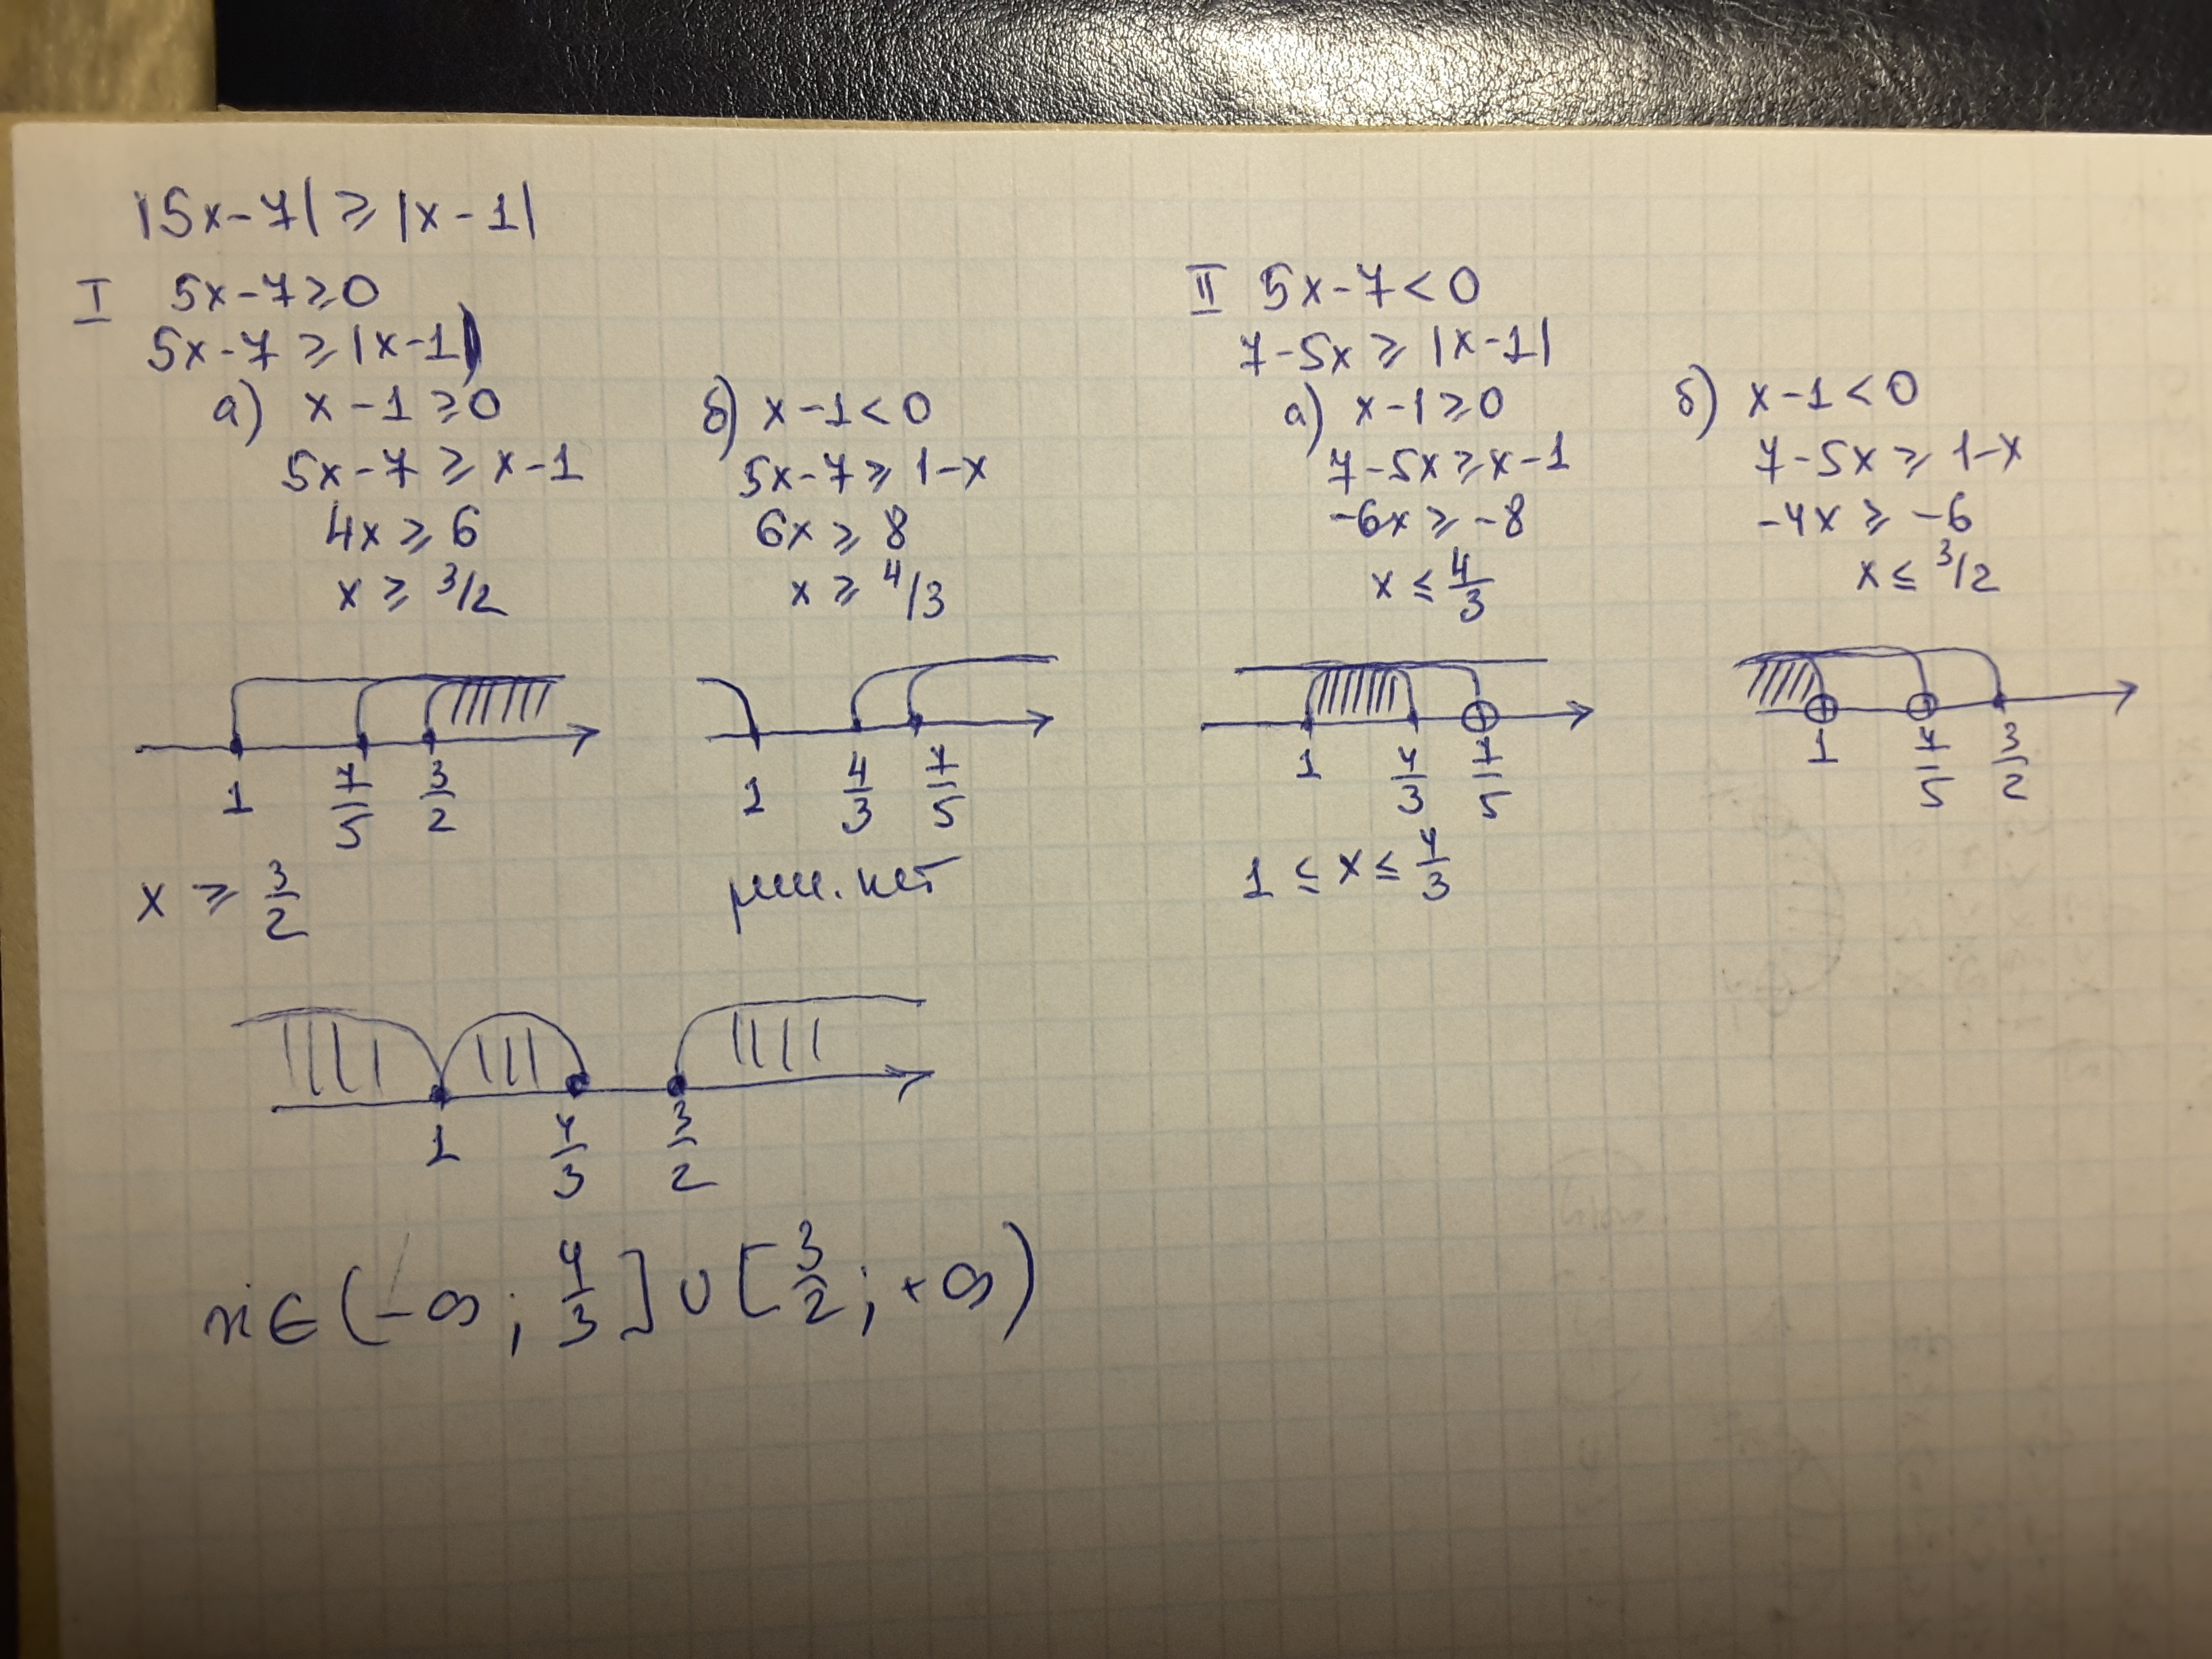 |5x-7| ≥ |x-1|
I 5x-7≥0
5x-7 ≥ |x-1|
а) x-1≥0
5x-7 ≥ x-1
4x ≥ 6
x ≥ 3/2
1 7/5 3/2
x ≥ 3/2
б) x-1<0
5x-7 ≥ 1-x
6x ≥ 8
x ≥ 4/3
1 4/3 7/5
реш. нет
II 5x-7<0
7-5x ≥ |x-1|
а) x-1≥0
7-5x≥x-1
-6x ≥ -8
x ≤ 4/3
1 4/3 7/5
1 ≤ x ≤ 4/3
б) x-1<0
7-5x ≥ 1-x
-4x ≥ -6
x ≤ 3/2
1 7/5 3/2
1 4/3 3/2
x∈(-∞; 4/3]∪[3/2; +∞)